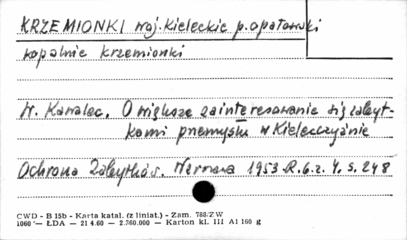 KRZEMIONKI woj. kieleckie p. opatowski
kopalnie krzemionki
H. Kamalec. O większe zainteresowanie się zabyt-
kami przemysłu w Kielecczyźnie
Ochrona Zabytków. Warszawa 1953 R. 6. z. 4. s. 248
CWD - B 15b - Karta katal. (z liniat.) - Zam. 788/ZW
1060 — ŁDA — 21 4.60 — 2.760.000 — Karton kl. III A1 160 g